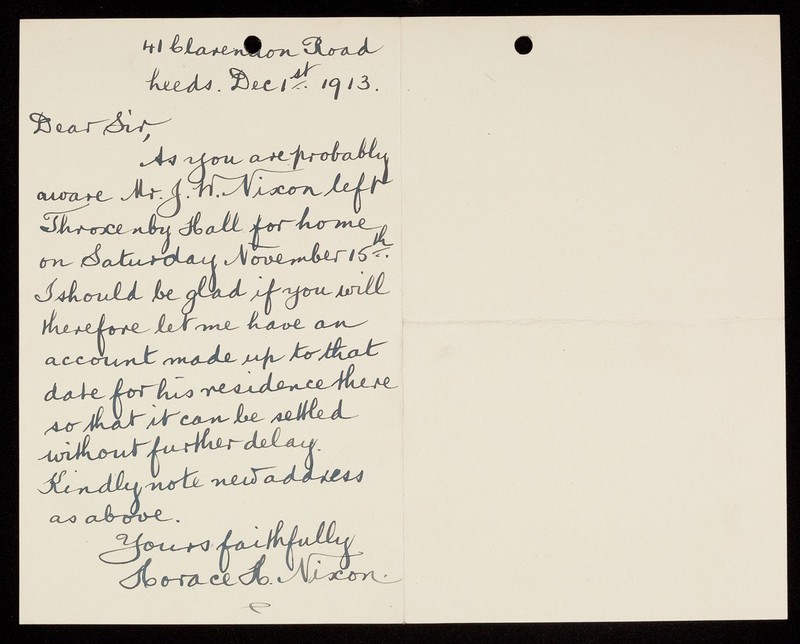 41 Clarendon Road
Leeds. Dec 1st. 1913.
Dear Sir,
As you are probably
aware Mr. J. W. Nixon left
Throxenby Hall for home
on Saturday November 15th.
I should be glad if you will
therefore let me have an
account made up to that
date for his residence there
so that it can be settled
without further delay.
Kindly note new address
as above.
Yours faithfully
Horace H. Nixon.